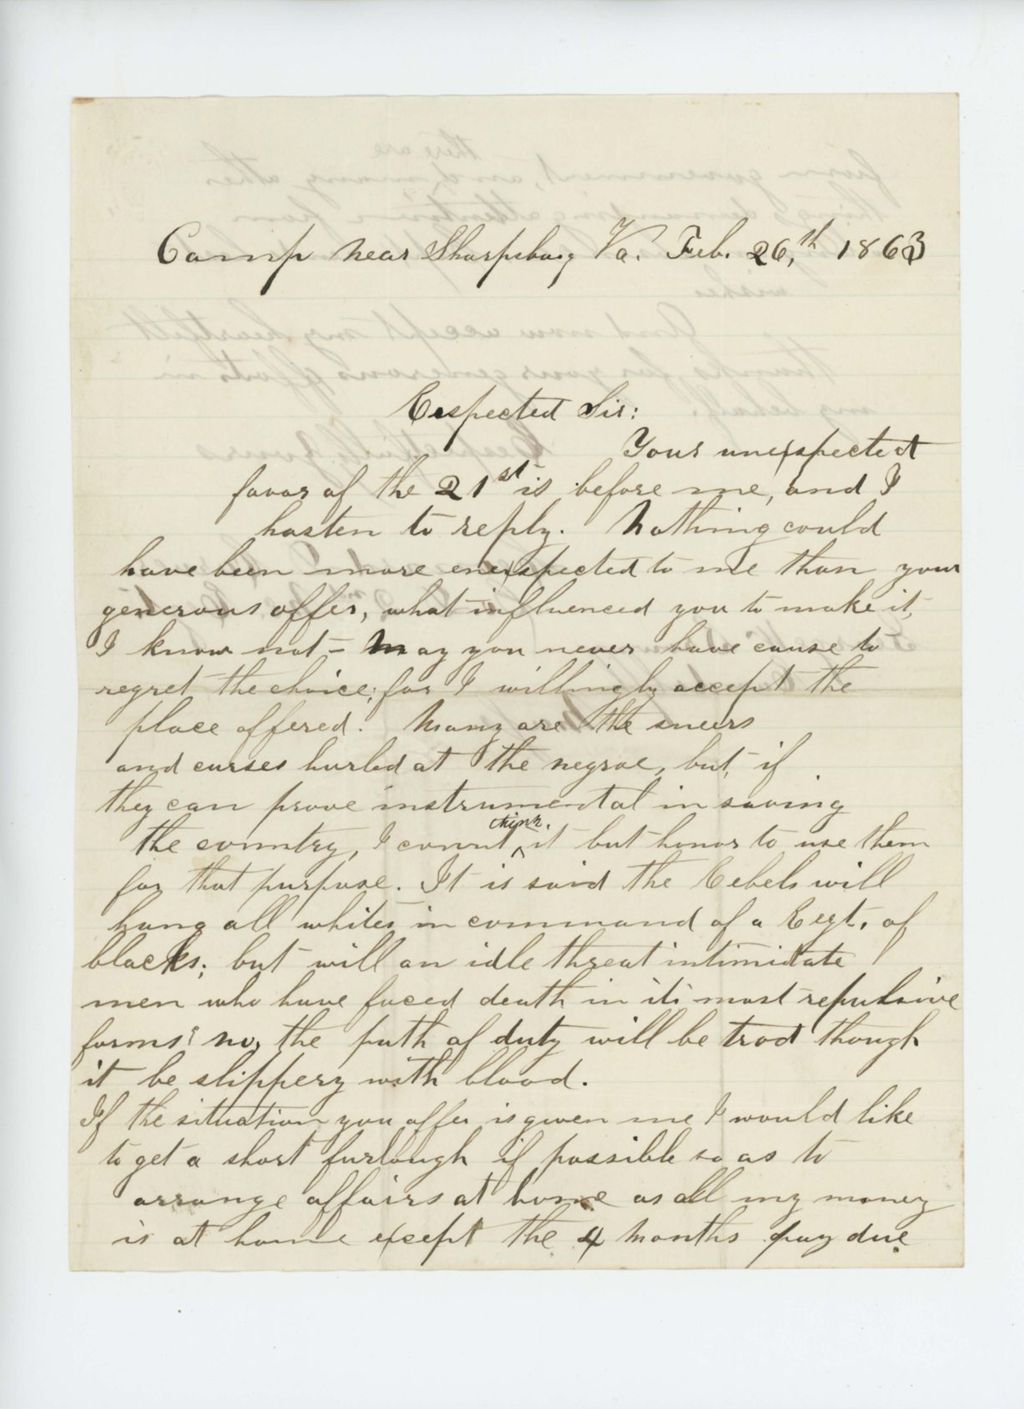 Camp near Sharpsburg Va. Feb. 26,th 1863
Respected Sir:
Your unexpected
favor of the 21st is before me, and I
hasten to reply. Nothing could
have been more unexpected to me than your
generous offer, what influenced you to make it,
I know not – May you never have cause to
regret the choice; for I willingly accept the
place offered. Many are the sneers
and curses hurled at the negroe, but, if
they can prove instrumental in saving
the country, I cannt think it but honor to use them
for that purpose. It is said the Rebels will
hang all whites in command of a Regt. of
blacks; but will an idle threat intimidate
men who have faced death in its most repulsive
forms? no, the path of duty will be trod though
it be slippery with blood.
If the situation you offer is given me I would like
to get a short furlough if possible so as to
arrange affairs at home as all my money
is at home except the 4 months pay due